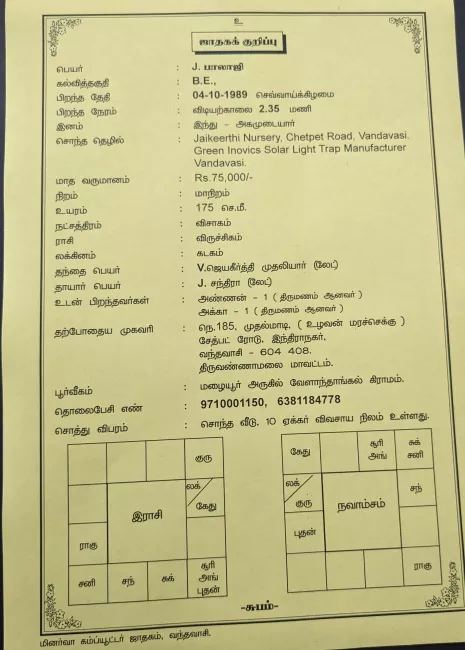 உ
ஜாதகக் குறிப்பு
பெயர் : J. பாலாஜி
கல்வித்தகுதி : B.E.,
பிறந்த தேதி : 04-10-1989 செவ்வாய்க்கிழமை
பிறந்த நேரம் : விடியற்காலை 2.35 மணி
இனம் : இந்து - அகமுடையார்
சொந்த தொழில் : Jaikeerthi Nursery, Chetpet Road, Vandavasi.
Green Inovics Solar Light Trap Manufacturer
Vandavasi.
மாத வருமானம் : Rs.75,000/-
நிறம் : மாநிறம்
உயரம் : 175 செ.மீ.
நட்சத்திரம் : விசாகம்
ராசி : விருச்சிகம்
லக்கினம் : கடகம்
தந்தை பெயர் : V.ஜெயகீர்த்தி முதலியார் (லேட்)
தாயார் பெயர் : J. சந்திரா (லேட்)
உடன் பிறந்தவர்கள் : அண்ணன் - 1 ( திருமணம் ஆனவர் )
அக்கா - 1 ( திருமணம் ஆனவர் )
தற்போதைய முகவரி : நெ.185, முதல்மாடி, ( உழவன் மரச்செக்கு )
சேத்பட் ரோடு, இந்திராநகர்,
வந்தவாசி - 604 408.
திருவண்ணாமலை மாவட்டம்.
பூர்வீகம் : மழையூர் அருகில் வேளாந்தாங்கல் கிராமம்.
தொலைபேசி எண் : 9710001150, 6381184778
சொத்து விபரம் : சொந்த வீடு, 10 ஏக்கர் விவசாய நிலம் உள்ளது.
குரு
லக்
கேது
இராசி
ராகு
சனி சந் சுக் சூரி
அங்
புதன்
கேது சூரி
அங் சுக்
சனி
லக்
குரு
நவாம்சம்
சந்
புதன்
ராகு
-சுபம்-
மினர்வா கம்ப்யூட்டர் ஜாதகம், வந்தவாசி.